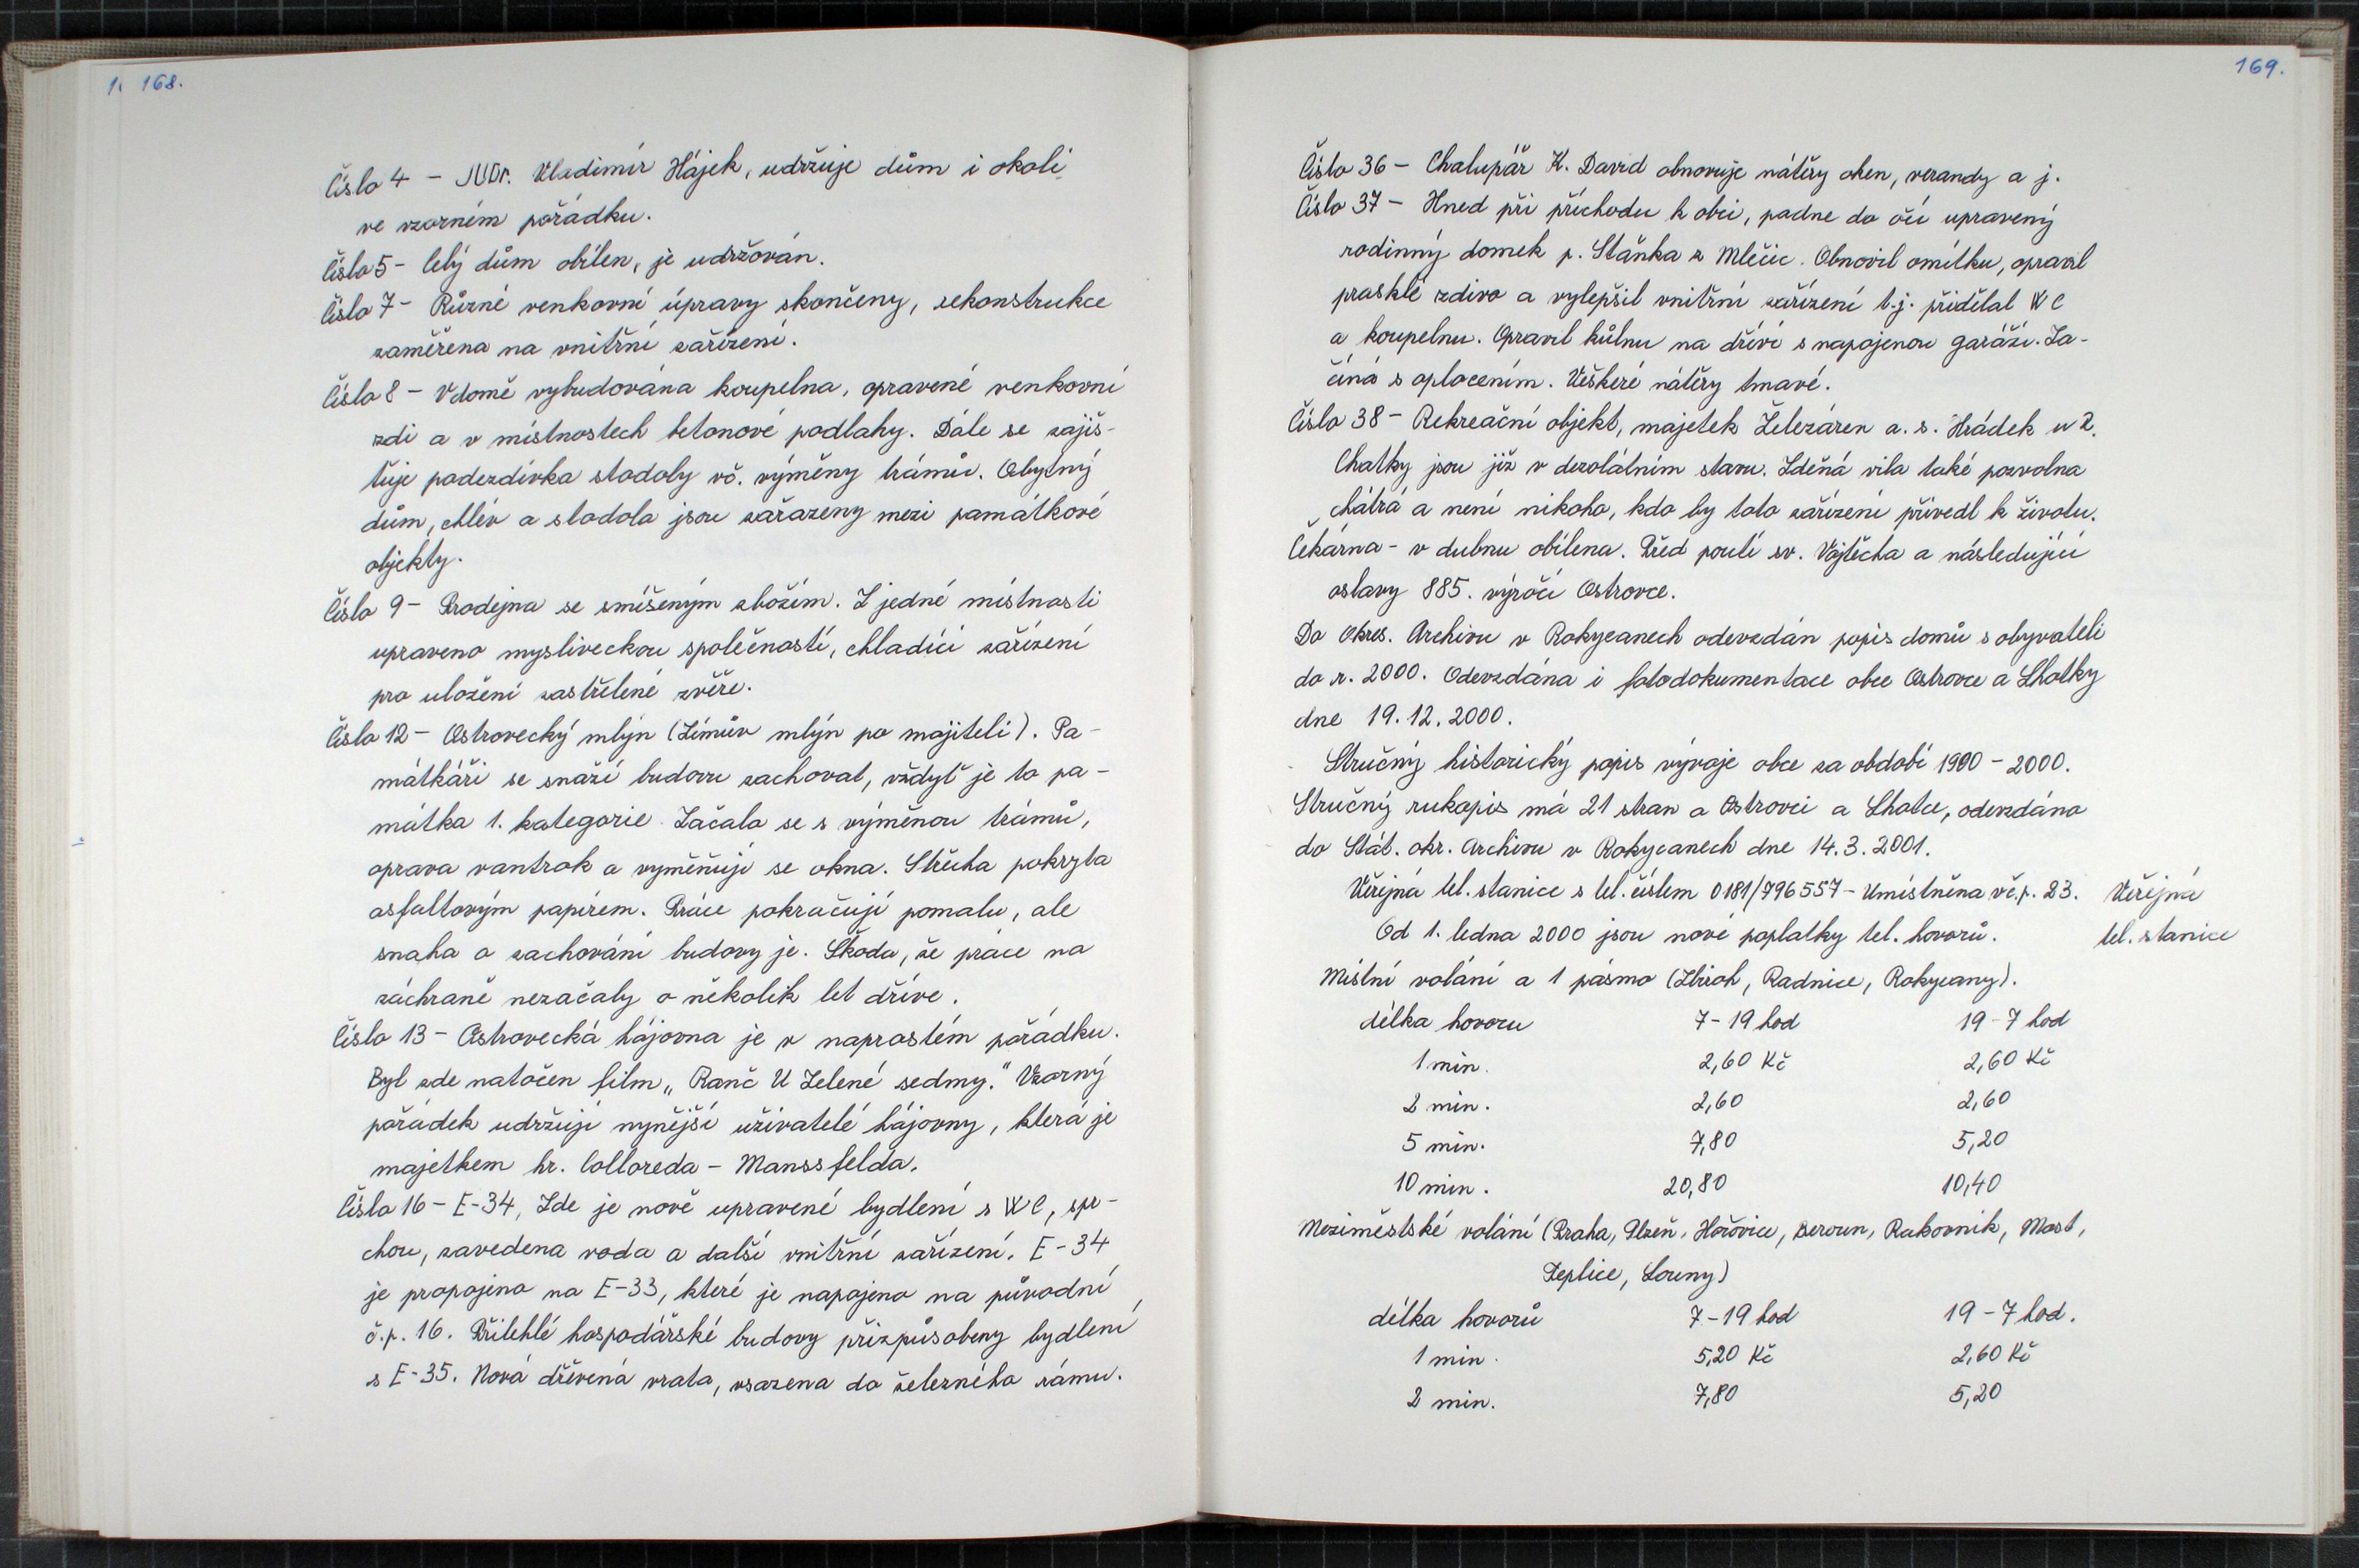 1. 168.
Číslo 4 – JUDr. Vladimír Hájek, udržuje dům i okolí
ve vzorném pořádku.
Číslo 5 – Celý dům obílen, je udržován.
Číslo 7 – Různé venkovní úpravy skončeny, rekonstrukce
zaměřena na vnitřní zařízení.
Číslo 8 – V domě vybudována koupelna, opravené venkovní
zdi a v místnostech betonové podlahy. Dále se zajiš-
ťuje podezdívka stodoly vč. výměny trámův. Obytný
dům, chlév a stodola jsou zařazeny mezi památkové
objekty.
Číslo 9 – Prodejna se smíšeným zbožím. Z jedné místnosti
upraveno mysliveckou společností, chladící zařízení
pro uložení zastřelené zvěře.
Číslo 12 – Ostrovecký mlýn (Zímův mlýn po majiteli). Pa-
mátkáři se snaží budovu zachovat, vždyť je to pa-
mátka 1. kategorie. Začalo se s výměnou trámů,
oprava vantrok a vyměňují se okna. Střecha pokryta
asfaltovým papírem. Práce pokračují pomalu, ale
snaha o zachování budovy je. Škoda, že práce na
záchraně nezačaly o několik let dříve.
Číslo 13 – Ostrovecká hájovna je v naprostém pořádku.
Byl zde natočen film „Ranč U Zelené sedmy." Vzorný
pořádek udržují nynější uživatelé hájovny, která je
majetkem hr. Colloreda – Manssfelda.
Číslo 16 – E-34, Zde je nově upravené bydlení s WC, spr-
chou, zavedena voda a další vnitřní zařízení. E-34
je propojeno na E-33, které je napojeno na původní
č.p. 16. Přilehlé hospodářské budovy přizpůsobeny bydlení
s E-35. Nová dřevěná vrata, vsazena do železného rámu.
169.
Číslo 36 – Chalupář K. David obnovuje nátěry oken, verandy a j.
Číslo 37 – Hned při příchodu k obci, padne do očí upravený
rodinný domek p. Staňka z Mlečic. Obnovil omítku, opravil
prasklé zdivo a vylepšil vnitřní zařízení t.j. přidělal WC
a koupelnu. Opravil kůlnu na dříví s napojenou garáží. Za-
číná s oplocením. Veškeré nátěry tmavé.
Číslo 38 – Rekreační objekt, majetek Železáren a.s. Hrádek u R.
Chatky jsou již v dezolátním stavu. Zděná vila také pozvolna
chátrá a není nikoho, kdo by toto zařízení přivedl k životu.
Čekárna – v dubnu obílena. Před poutí sv. Vojtěcha a následující
oslavy 885. výročí Ostrovce.
Do Okres. Archivu v Rokycanech odevzdán popis domů s obyvateli
do r. 2000. Odevzdána i fotodokumentace obce Ostrovce a Lhotky
dne 19.12.2000.
Stručný historický popis vývoje obce za období 1990 – 2000.
Stručný rukopis má 21 stran o Ostrovci a Lhotce, odevzdáno
do Stát. okr. Archivu v Rokycanech dne 14.3.2001.
Veřejná tel. stanice s tel. číslem 0181/796557 – Umístněna v č.p. 23. Veřejná
Od 1. ledna 2000 jsou nové poplatky tel. hovorů. tel. stanice
Místní volání a 1 pásmo (Zbiroh, Radnice, Rokycany).
délka hovoru 7 – 19 hod 19 – 7 hod
1 min. 2,60 Kč 2,60 Kč
2 min. 2,60 2,60
5 min. 7,80 5,20
10 min. 20,80 10,40
Meziměstské volání (Praha, Plzeň, Hořovice, Beroun, Rakovník, Most,
Teplice, Louny)
délka hovorů 7 – 19 hod 19 – 7 hod.
1 min. 5,20 Kč 2,60 Kč
2 min. 7,80 5,20